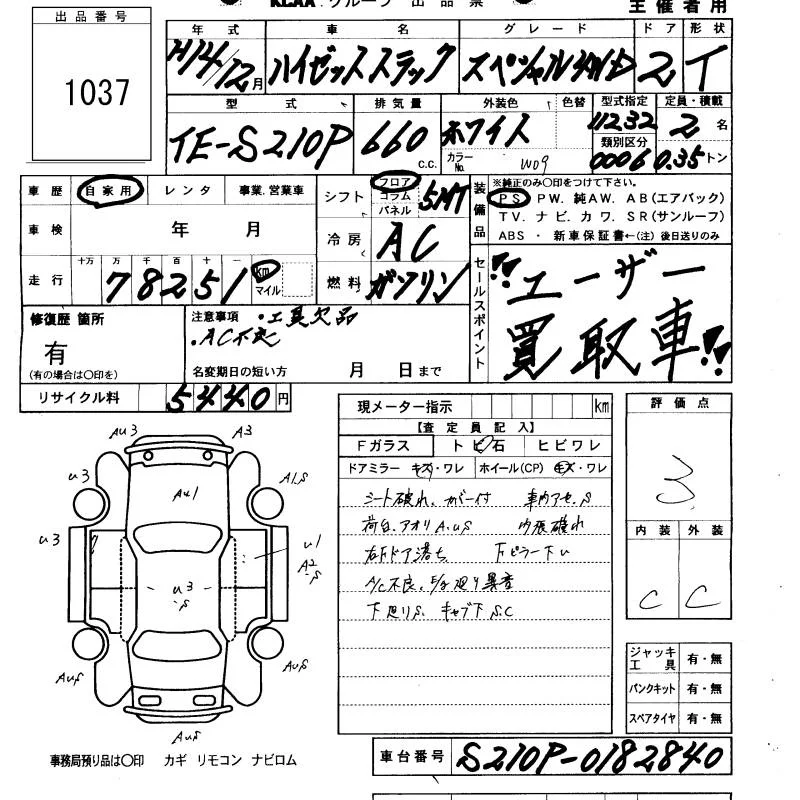 KCAA グループ 出品票
主催者用
出品番号
1037
年式 車名 グレード ドア 形状
H14/12月 ハイゼットストラック スペシャル4WD 2 T
型式 排気量 外装色 色替 型式指定 定員・積載
TE-S210P 660 c.c. ホワイト カラーNo. W09 11232 類別区分 0006 2名 0.35トン
車歴 自家用 レンタ 事業.営業車
車検 年 月
走行 十万 万 千 百 十 一 78251 km マイル
シフト フロア コラム パネル 5MT
冷房 AC
燃料 ガソリン
装備品
※純正のみ○印をつけて下さい。
PS PW. 純AW. AB(エアバック)
TV. ナビ. カワ. SR(サンルーフ)
ABS ・ 新車保証書←(注) 後日送りのみ
セールスポイント
"ユーザー
買取車!!
修復歴 箇所
有
(有の場合は○印を)
注意事項 ・工具欠品
・AC不良
名変期日の短い方 月 日まで
リサイクル料 5440円
現メーター指示 km
【査定員記入】
Fガラス トビ石 ヒビワレ
ドアミラー キズ・ワレ ホイール(CP) キズ・ワレ
シート破れ、カバー付 車内アセ.S
荷台.アオリA.uS 内張破れ
右下ドア落ち 下ピラー下u
A/C不良.
下廻りS. キャブ下S.C
評価点
3
内装 外装
C C
ジャッキ工具 有・無
パンクキット 有・無
スペアタイヤ 有・無
Au3 A3
u3 A1.S
Au1
u3 u1
A2-S
u3
-S
AuS AuS
AuS
事務局預り品は○印 カギ リモコン ナビロム
車台番号 S210P-0182840